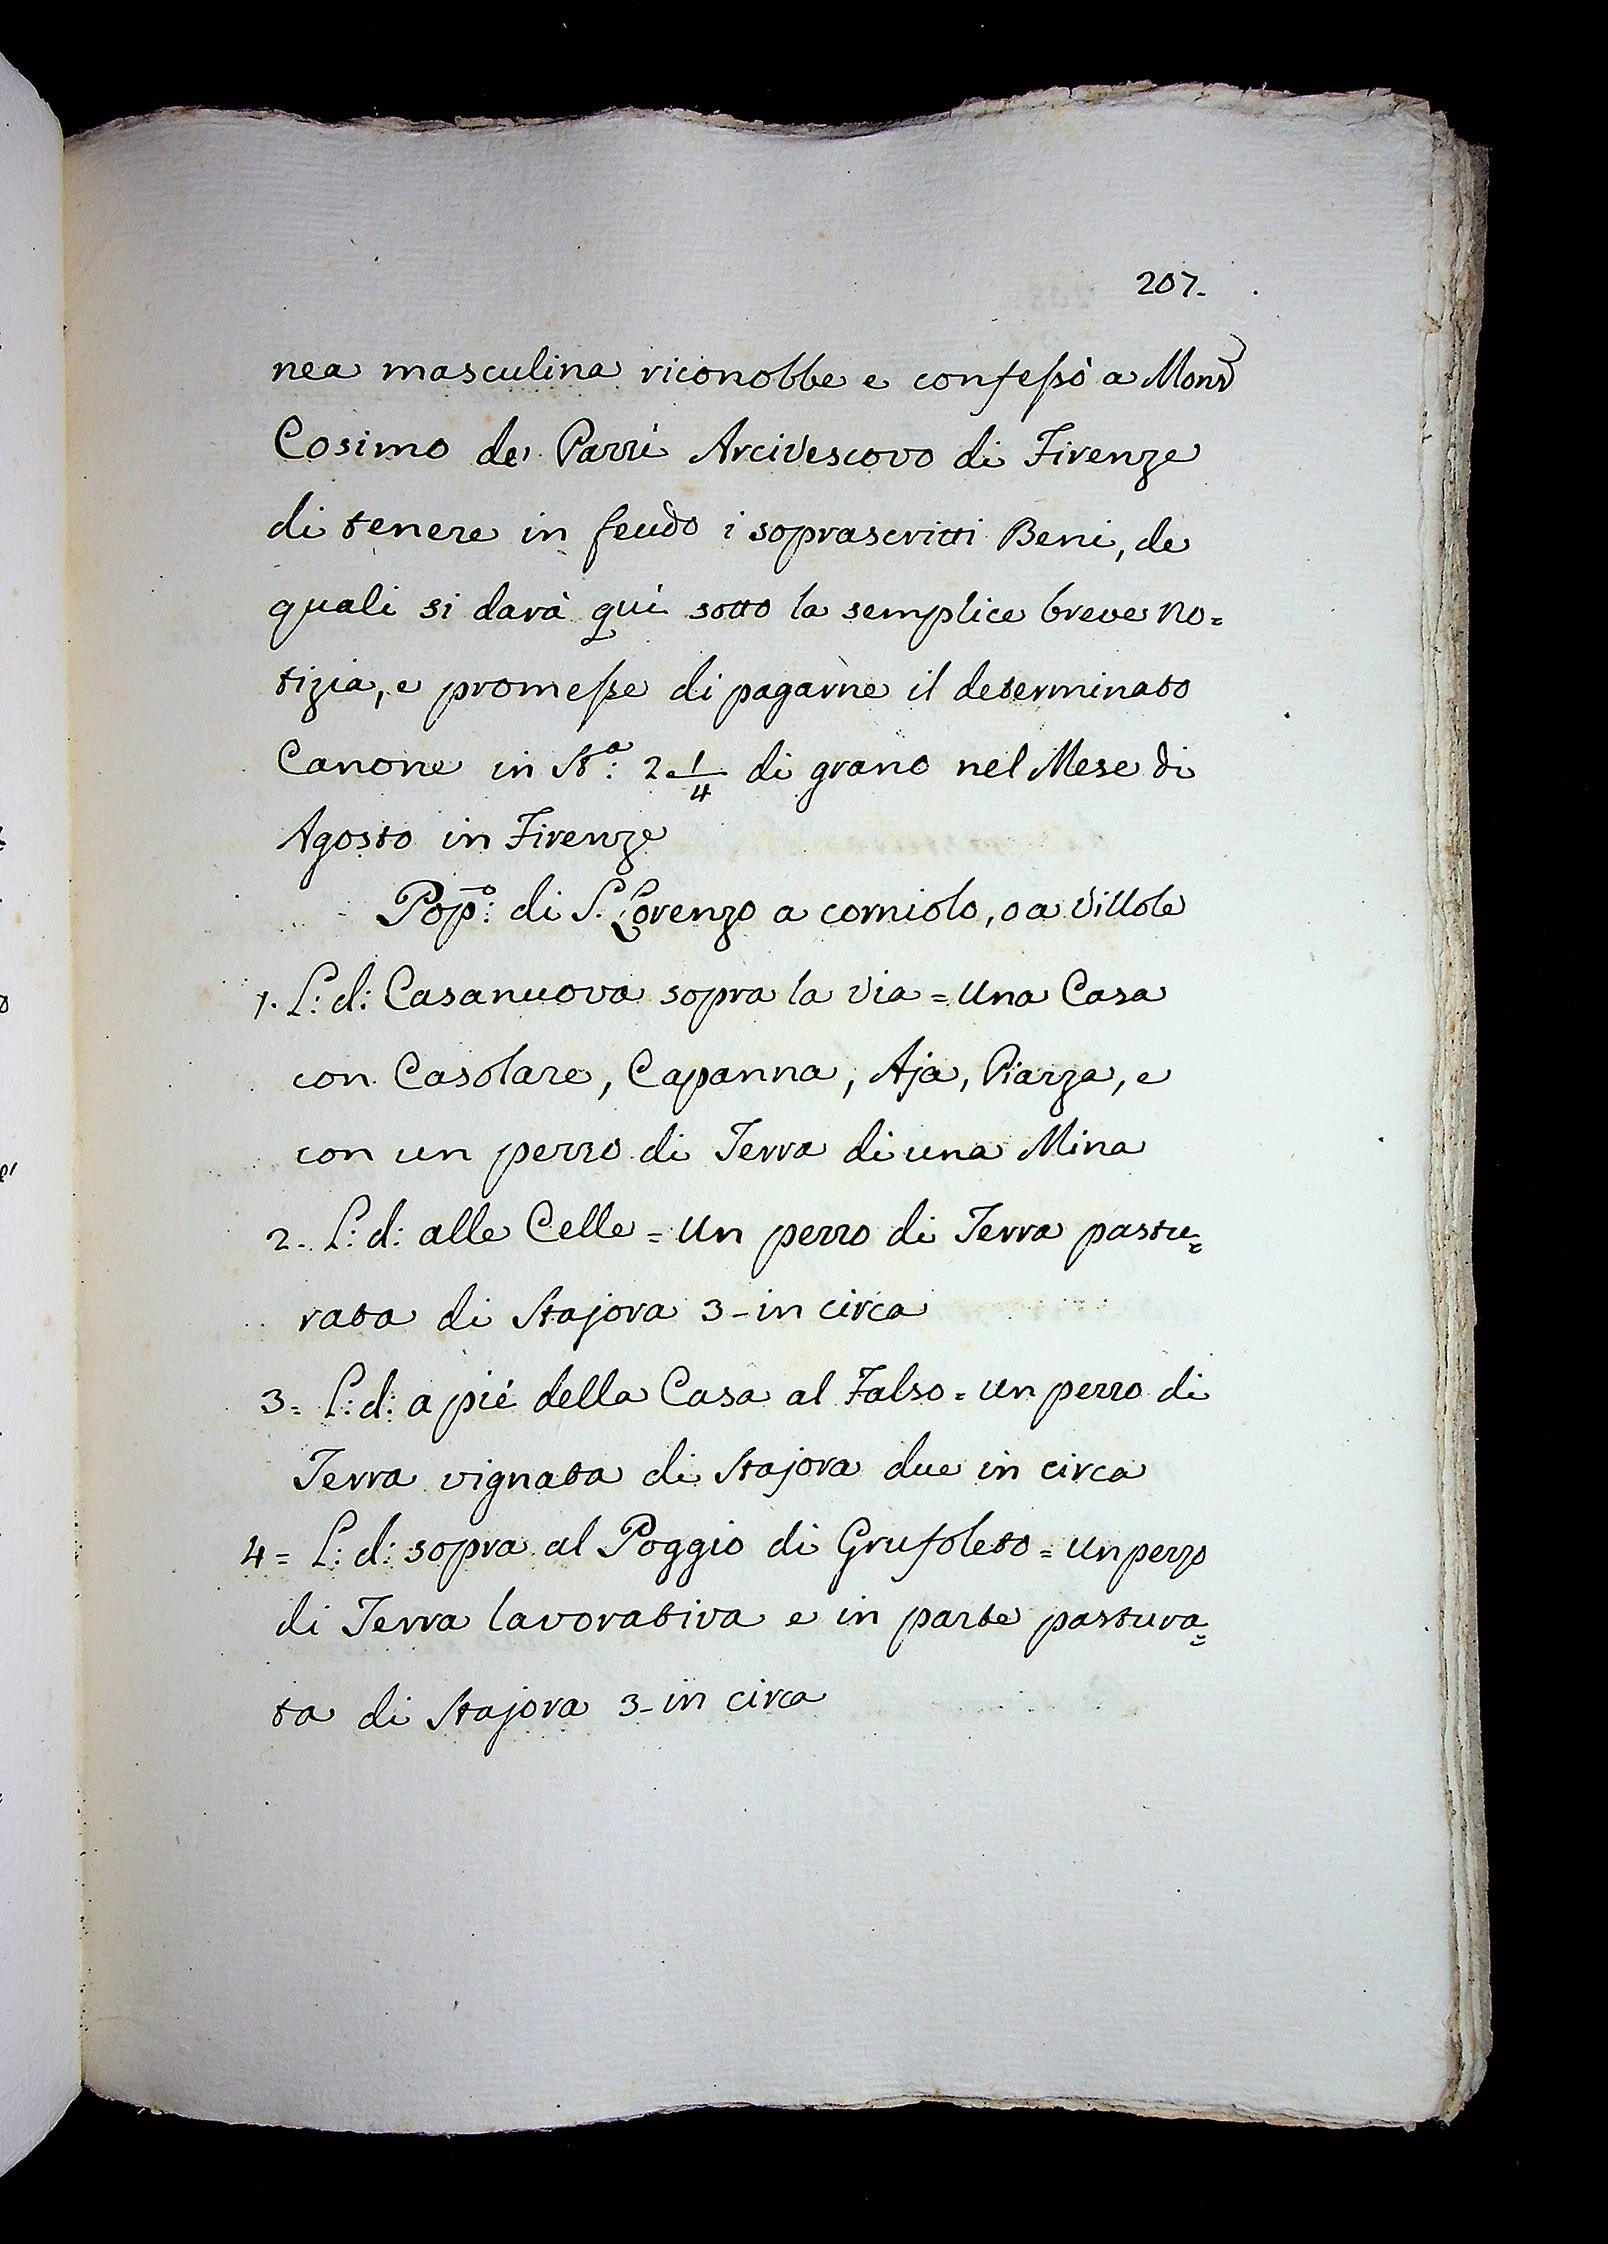 207.
nea masculina riconobbe e confessò a Monsr
Cosimo de' Pazzi Arcivescovo di Firenze
di tenere in feudo i soprascritti Beni, de
quali si darà quì sotto la semplice breve no=
tizia, e promesse di pagarne il determinato
Canone in Sta: 2 1/4 di grano nel Mese di
Agosto in Firenze
Popo: di S. Lorenzo a corniolo, o a Villole
1. L: d: Casanuova sopra la via = Una Casa
con Casolare, Capanna, Aja, Piazza, e
con un pezzo di Terra di una Mina
2. L: d: alle Celle = Un pezzo di Terra pastu=
rata di Stajora 3 - in circa
3 = L: d: a piè della Casa al Falso = Un pezzo di
Terra vignata di Stajora due in circa
4 = L: d: sopra al Poggio di Grufoleto = Un pezzo
di Terra lavorativa e in parte pastura=
ta di Stajora 3 - in circa